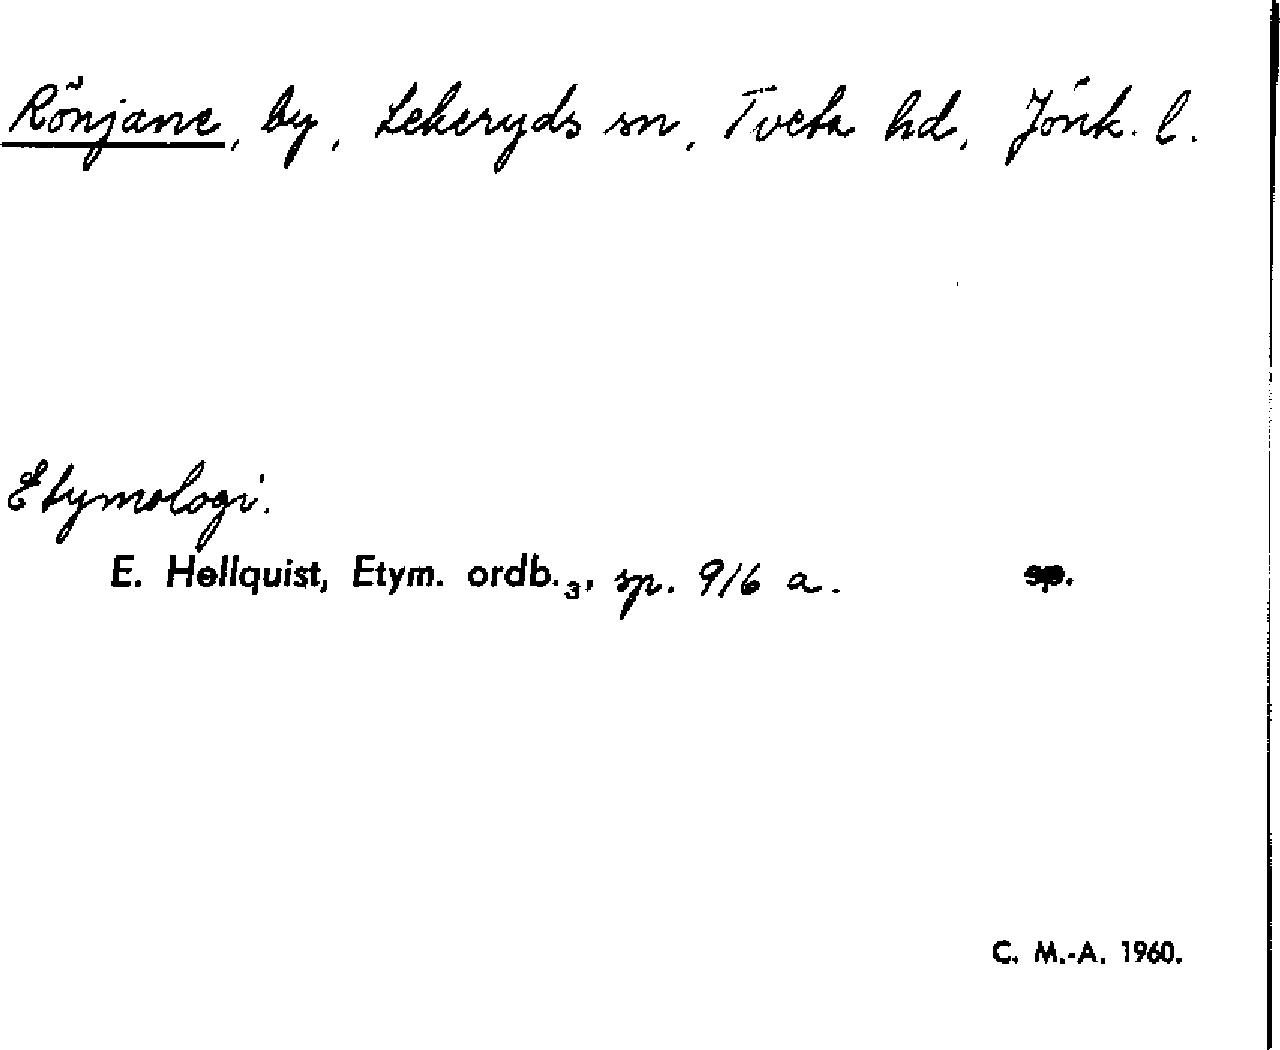 Rönjane, by, Lekeryds sn, Tveta hd, Jönk. l.
Etymologi.
E. Hellquist, Etym. ordb.₃, sp. 916 a. sp.
C. M.-A. 1960.